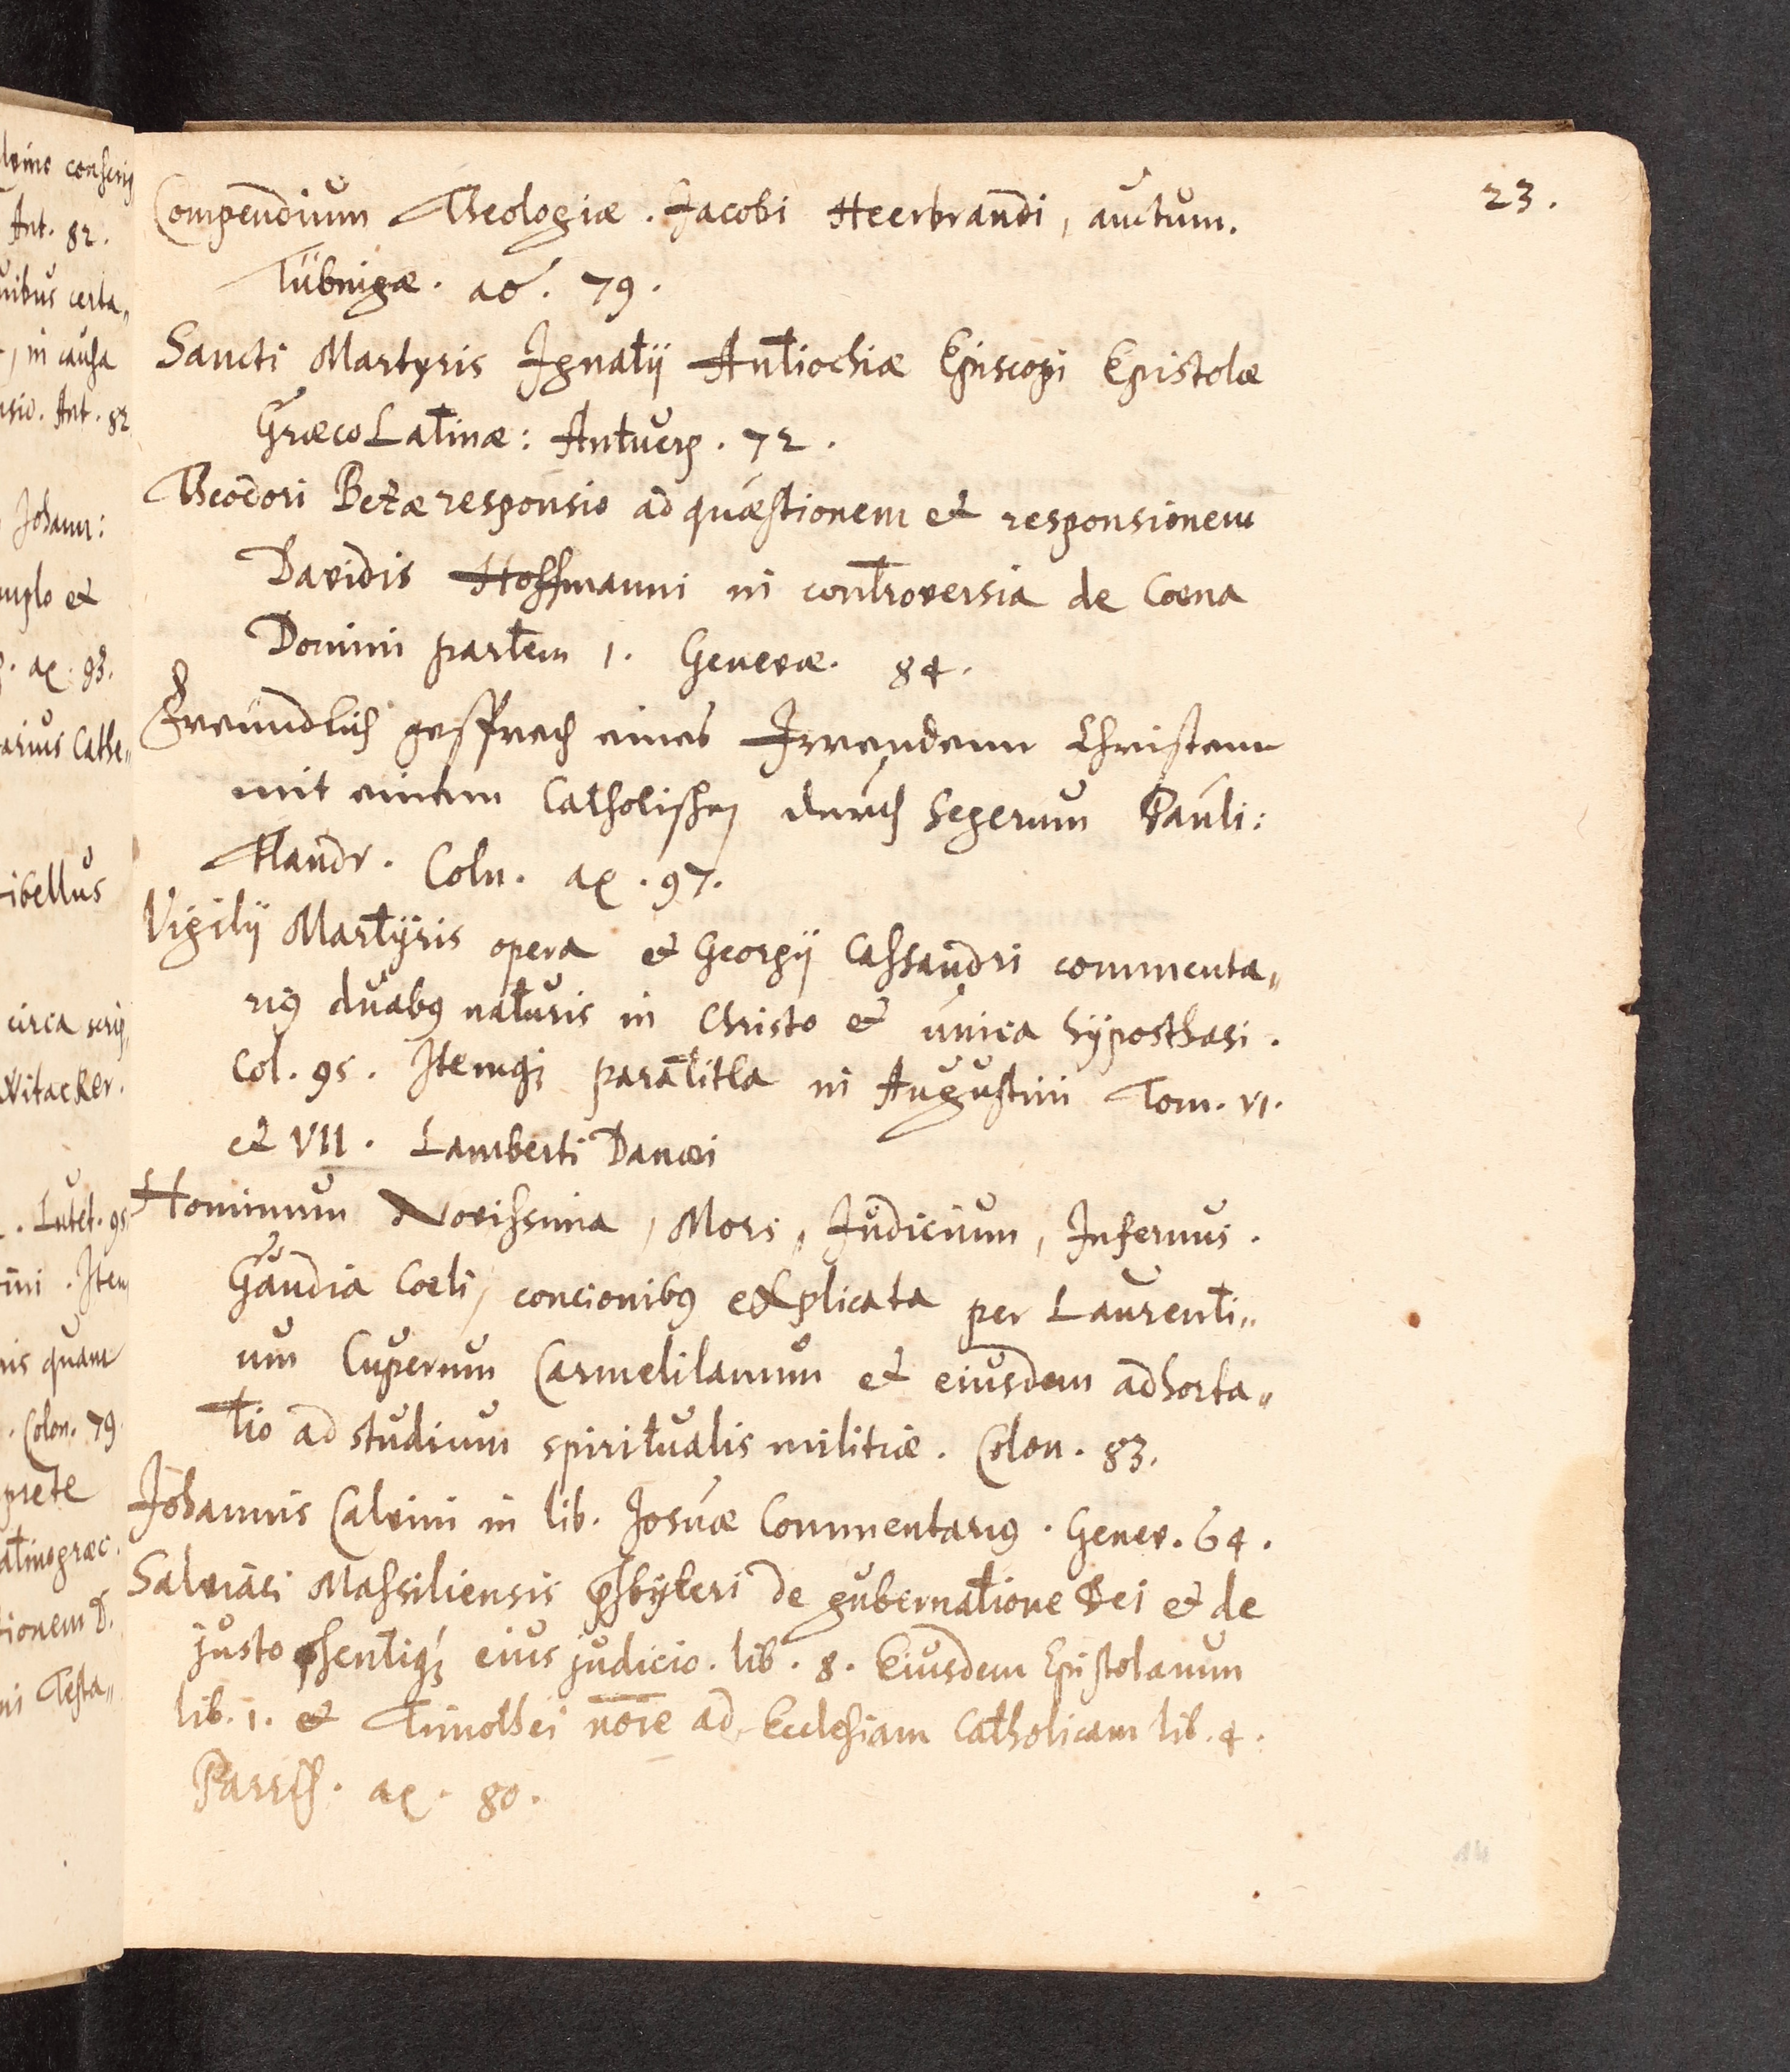 23.
Compendium Theologiæ. Jacobi Heerbrandi, auctum.
Tübingæ. ao. 79.
Sancti Martyris Ignatij Antiochiæ Episcopi Epistolæ
Græco Latinæ: Antverp. 72.
Theodori Bezæ responsio ad quæstionem et responsionem
Davidis Hoffmanni in controversia de Coena
Domini partem 1. Genevæ. 84.
Freundlich gesprech eines Irrendenn Christenn
mit einem Catholischen durch Segerum Pauli:
Flandr. Coln. 97.
Vigilij Martyris opera et Georgij Cassandri commenta„
rius duabus naturis in Christo et unica hyposthasi.
Col. 95. Itemque paratitla in Augustini Tom. VI.
et VII. Lamberti Danæi
Hominum Novissima, Mors, Judicium, Infernus.
Gaudia Coeli, concionibus explicata per Laurenti„
um Cuperum Carmelitanum et eiusdem adhorta„
tio ad studium spiritualis militiæ. Colon. 83.
Johannis Calvini in lib. Josuæ Commentarius. Genev. 64.
Salviani Massiliensis pßbyteri de gubernatione Dei et de
justo pßentique eius judicio. lib. 8. Eiusdem Epistolarum
lib. 1. et Timothei noīe ad Ecclesiam Catholicam lib. 4.
Paris. 80.
ibellus
circa scrip
Witacker.
Lutet. 95
nis quam
Colon. 79
prete
atinogræc.
tionem D.
ni Testa„
Ant. 82.
in causa
Ant. 82
Johann:
93.
arius Cathe„